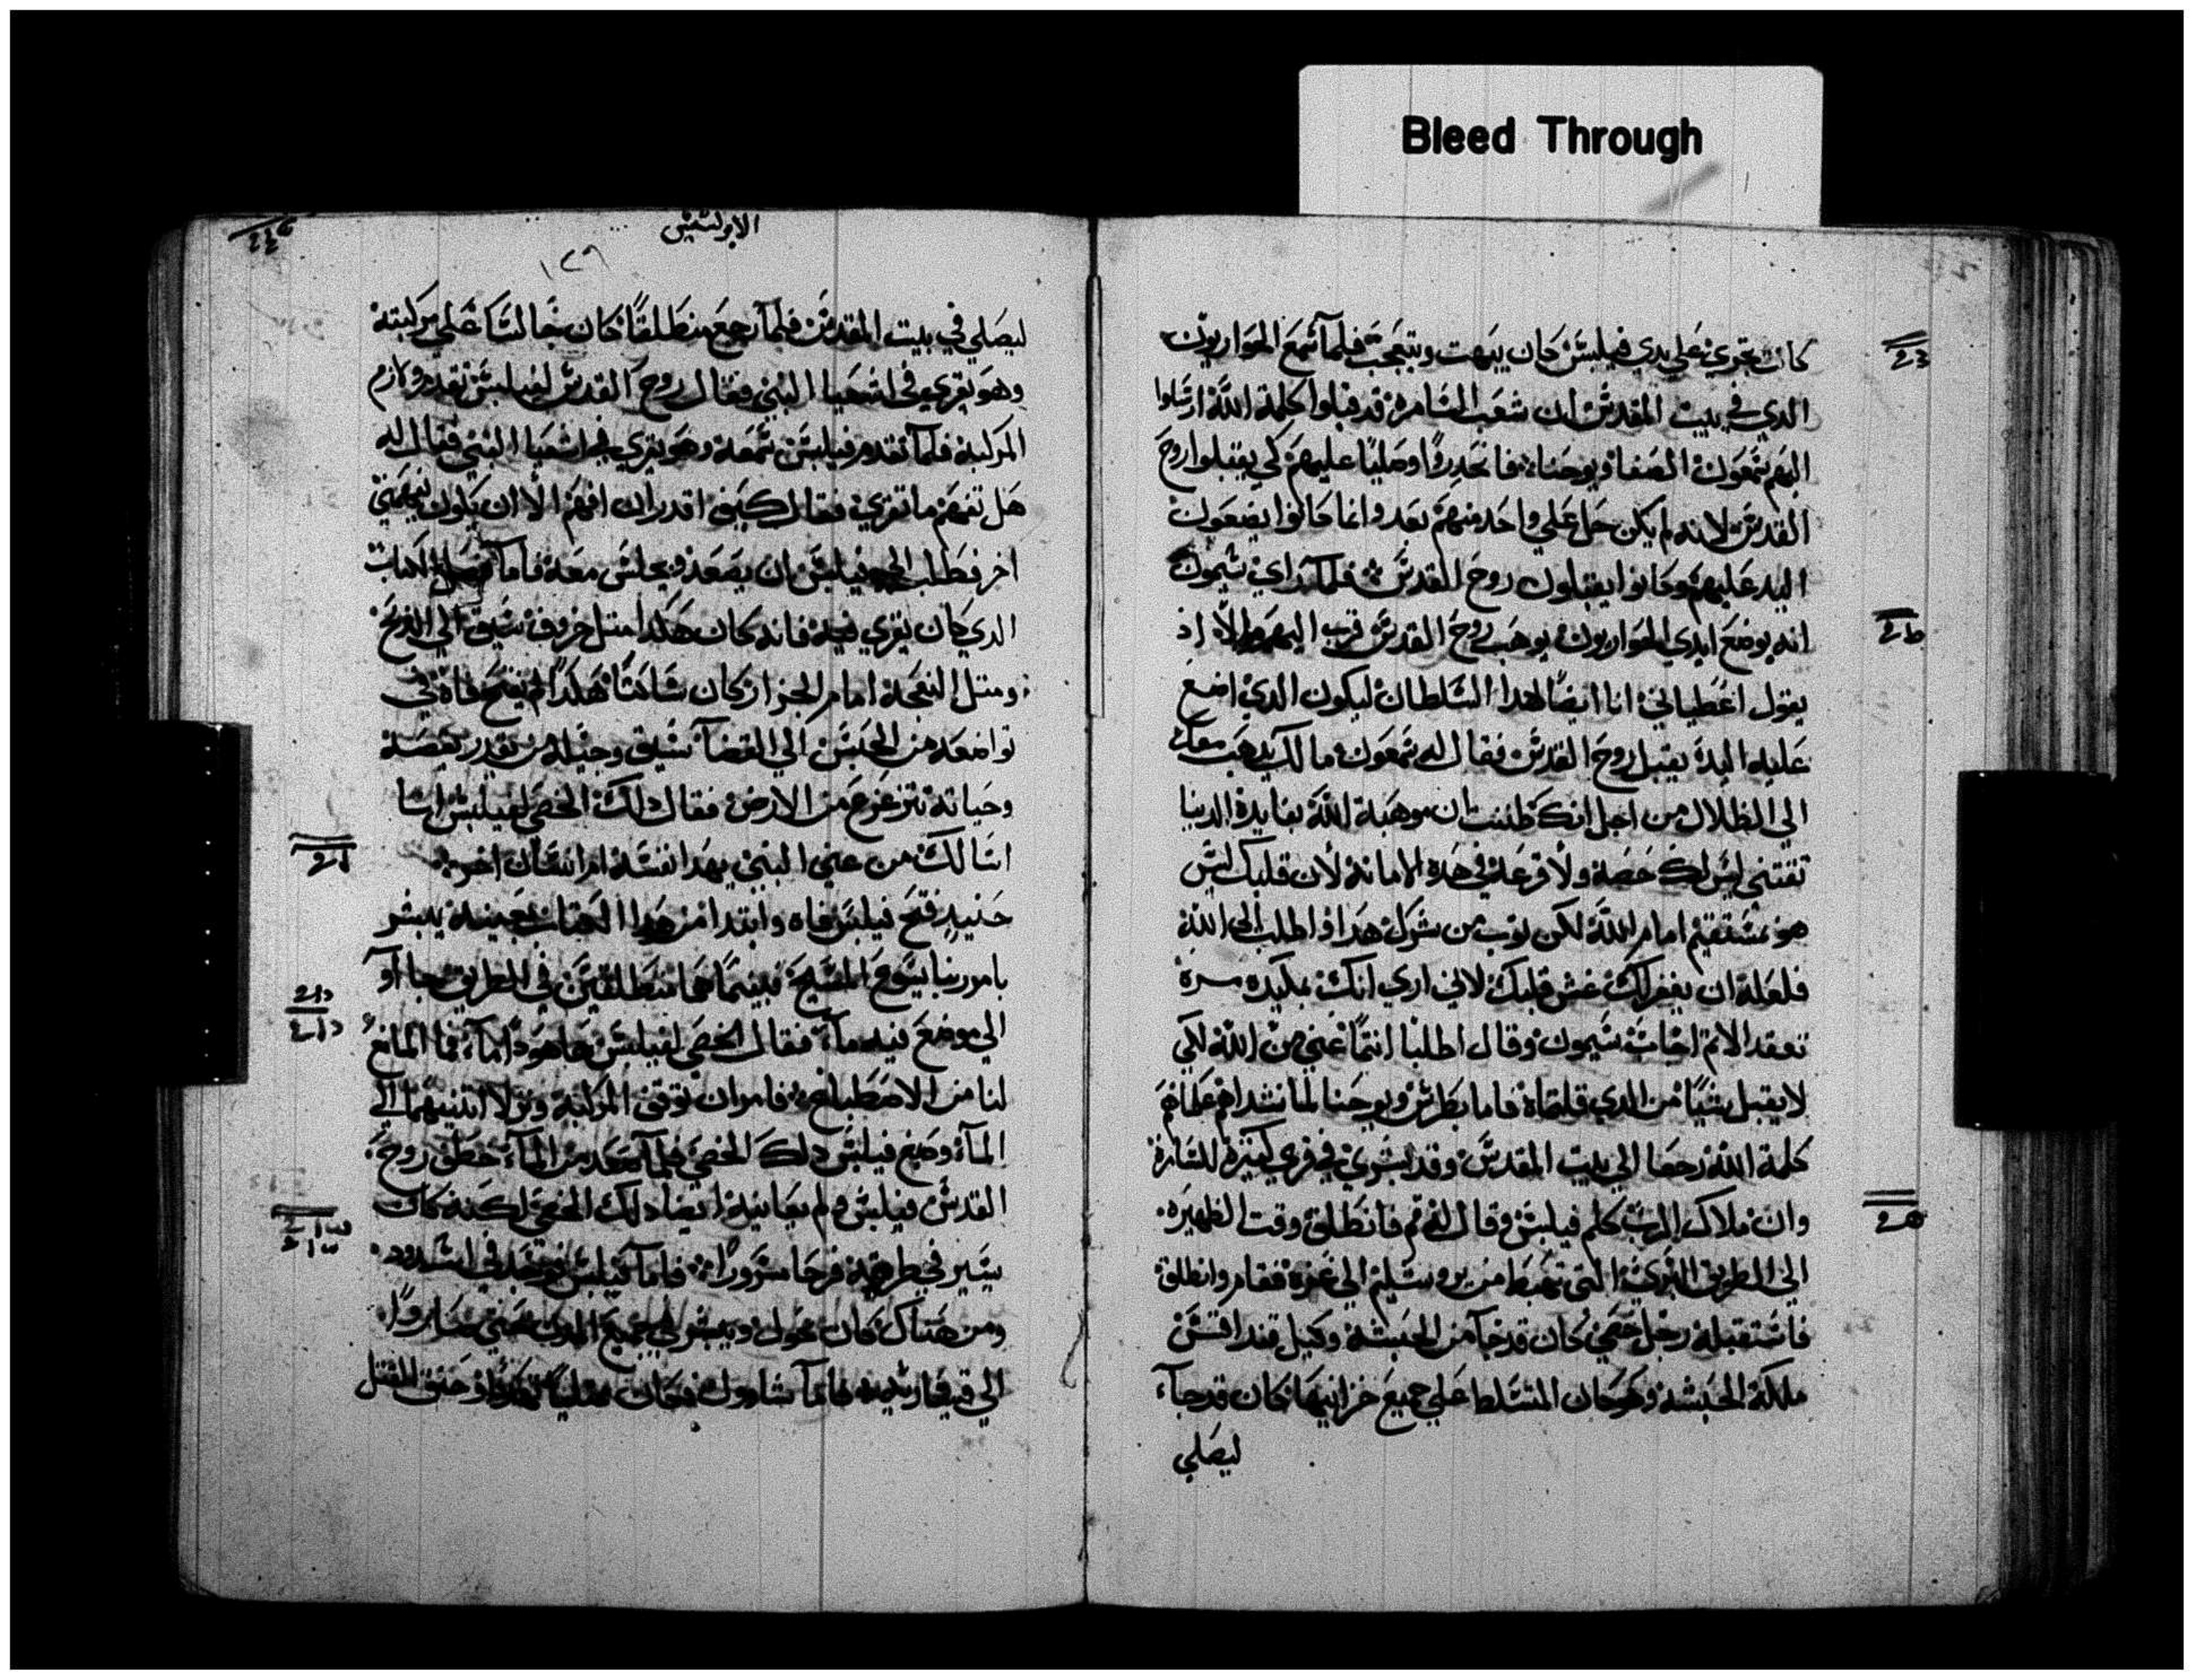 Bleed Through
كانت تجري علي يدي فيلبس كان يبهت ويتعجب فلما سمع الحواريون
الدي في بيت المقدس ان شعب السامره قد قبلوا كلمة الله ارسلوا
اليهم شمعون الصفا ويوحنا فانحدروا وصليا عليهم كي يقبلوا روح
القدس لانه لم يكن حل علي واحد منهم بعد وانما كانوا يضعون
اليد عليهم وكانوا يقبلون روح القدس فلما راي سيمون
انه بوضع ايدي الحواريون يوهب روح القدس قرب اليهم اد
يقول اعطياني انا ايضا هدا السلطان ليكون الدي اضع
عليه اليد يقبل روح القدس فقال له شمعون مالك يدهب معك
الي الظلال من اجل انك ظننت ان موهبة الله بفايدة الدنيا
تقتني ليس لك حصه ولا قرعه في هده الامانه لان قلبك ليس
هو مستقيم امام الله لكن توب من شرك هدا واطلب الي الله
فلعله ان يغفر لك غش قلبك لاني اري انك بكبده مره
وعقد الاتم اجاب سيمون وقال اطلبا انتما عني من الله لكي
لا يقبل شيا من الدي قلتماه فاما بطرس ويوحنا لما نشداهم وعلماهم
كلمة الله رجعا الي بيت المقدس وقد بشرو في قري كتيرة للسامرة
وان ملاك الرب كلم فيلبس وقال له قم فانطلق وقت الظهيره
الي الطريق البرية التي تهبط من يروشليم الي غزة فقام وانطلق
فاستقبله رجل خصي كان قد جآ من الحبشة وكيل قنداقس
ملكة الحبشه وهو كان المتسلط علي جميع خزاينها كان قد جآ
ليصلي
الابركسيس
١٢٩
ليصلي في بيت المقدس فلما رجع منطلقا كان جالسا علي مركبته
وهو يقري في اشعيا النبي فقال روح القدس لفيلبس تقدم ولازم
المركبة فلما تقدم فيلبس سمعه وهو يقري في اشعيا النبي فقال له
هل تفهم ما تقري فقال كيف اقدر ان افهم الا ان يكون يعلمني
اخر فطلب الي فيلبس ان يصعد ويجلس معه فاما فصل الكتاب
الدي كان يقري فيه فانه كان هكدا متل خروف سيق الي الدبح
ومتل النعجة امام الجزار كان ساكتا هكدا لم يفتح فاه في
تواضعه من الحبس الي القضآ سيق وجيله من يقدر يقصه
وحياته تتزعزع من الارض فقال دلك الخصي لفيلبس انا
اسالك من عني النبي بهدا نفسه ام انسان اخر
حنيد فتح فيلبس فاه وابتدا من هدا الكتاب بعينه يبشر
بامور ربنا يسوع المسيح فبينما هما منطلقين في الطريق جا او
الي موضع فيه مآ فقال الخصي لفيلبس ها هودا مآ فما المانع
لنا من الاصطباغ فامر ان توقف المركبة ونزلا اتنيهما الي
المآ وصبغ فيلبس دلك الخصي فلما صعد من المآ خطف روح
القدس فيلبس ولم يعاينه ايضا دلك الخصي لكنه كان
يسير في طريقه فرحا مسرورا فاما فيلبس فوجد في اشدود
ومن هناك كان يجول ويبشر في جميع المدن حتي صاروا
الي قيصارية فاما شاوول فكان ممتليا تهددا وحنق القتل